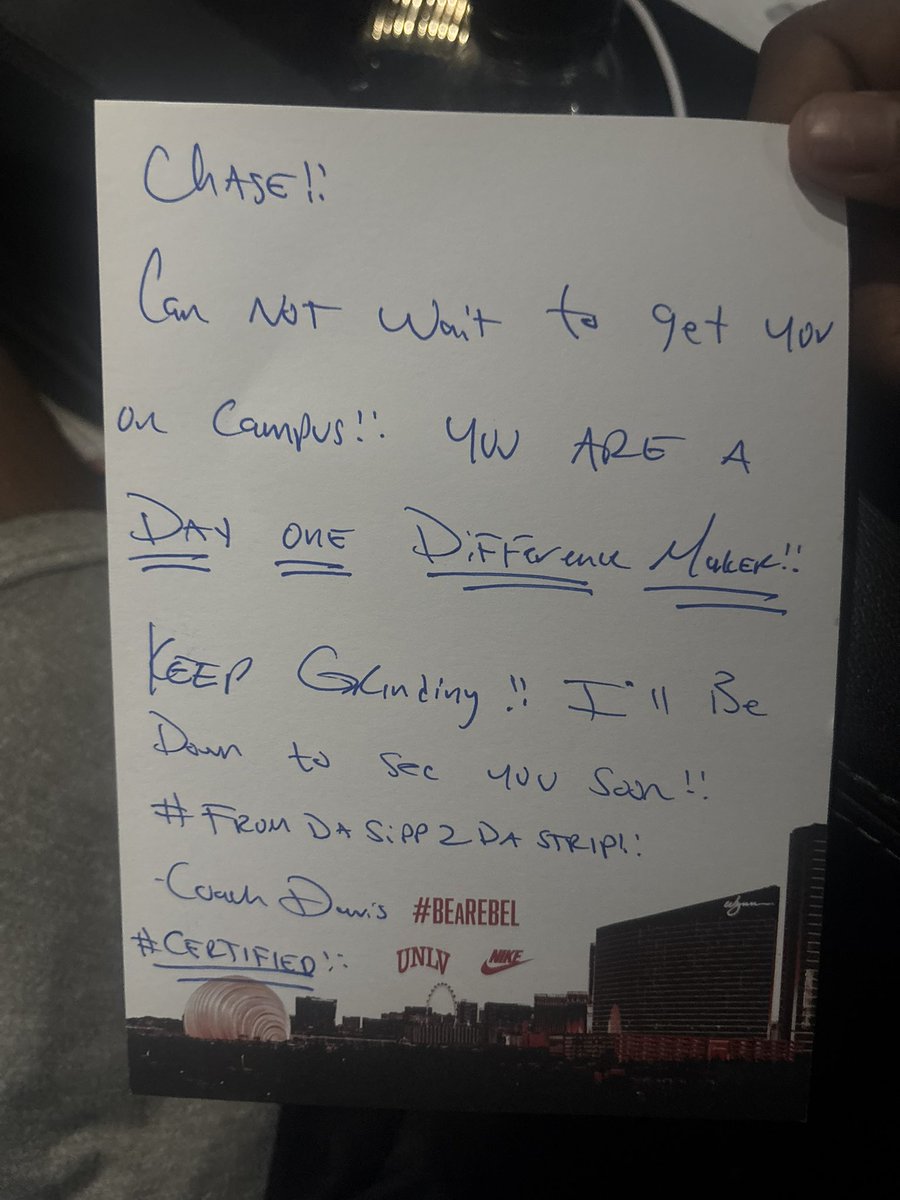 CHASE!!
Can NOT Wait to get you
on Campus!! YOU ARE A
DAY ONE DiFFerence MaKER!!
KEEP GRinding!! I'll Be
Down to see you Soon!!
#FROM DA SiPP 2 DA STRIP!!
-Coach Davis #BEAREBEL
#CERTIFIED!!
UNLV NIKE
wynn